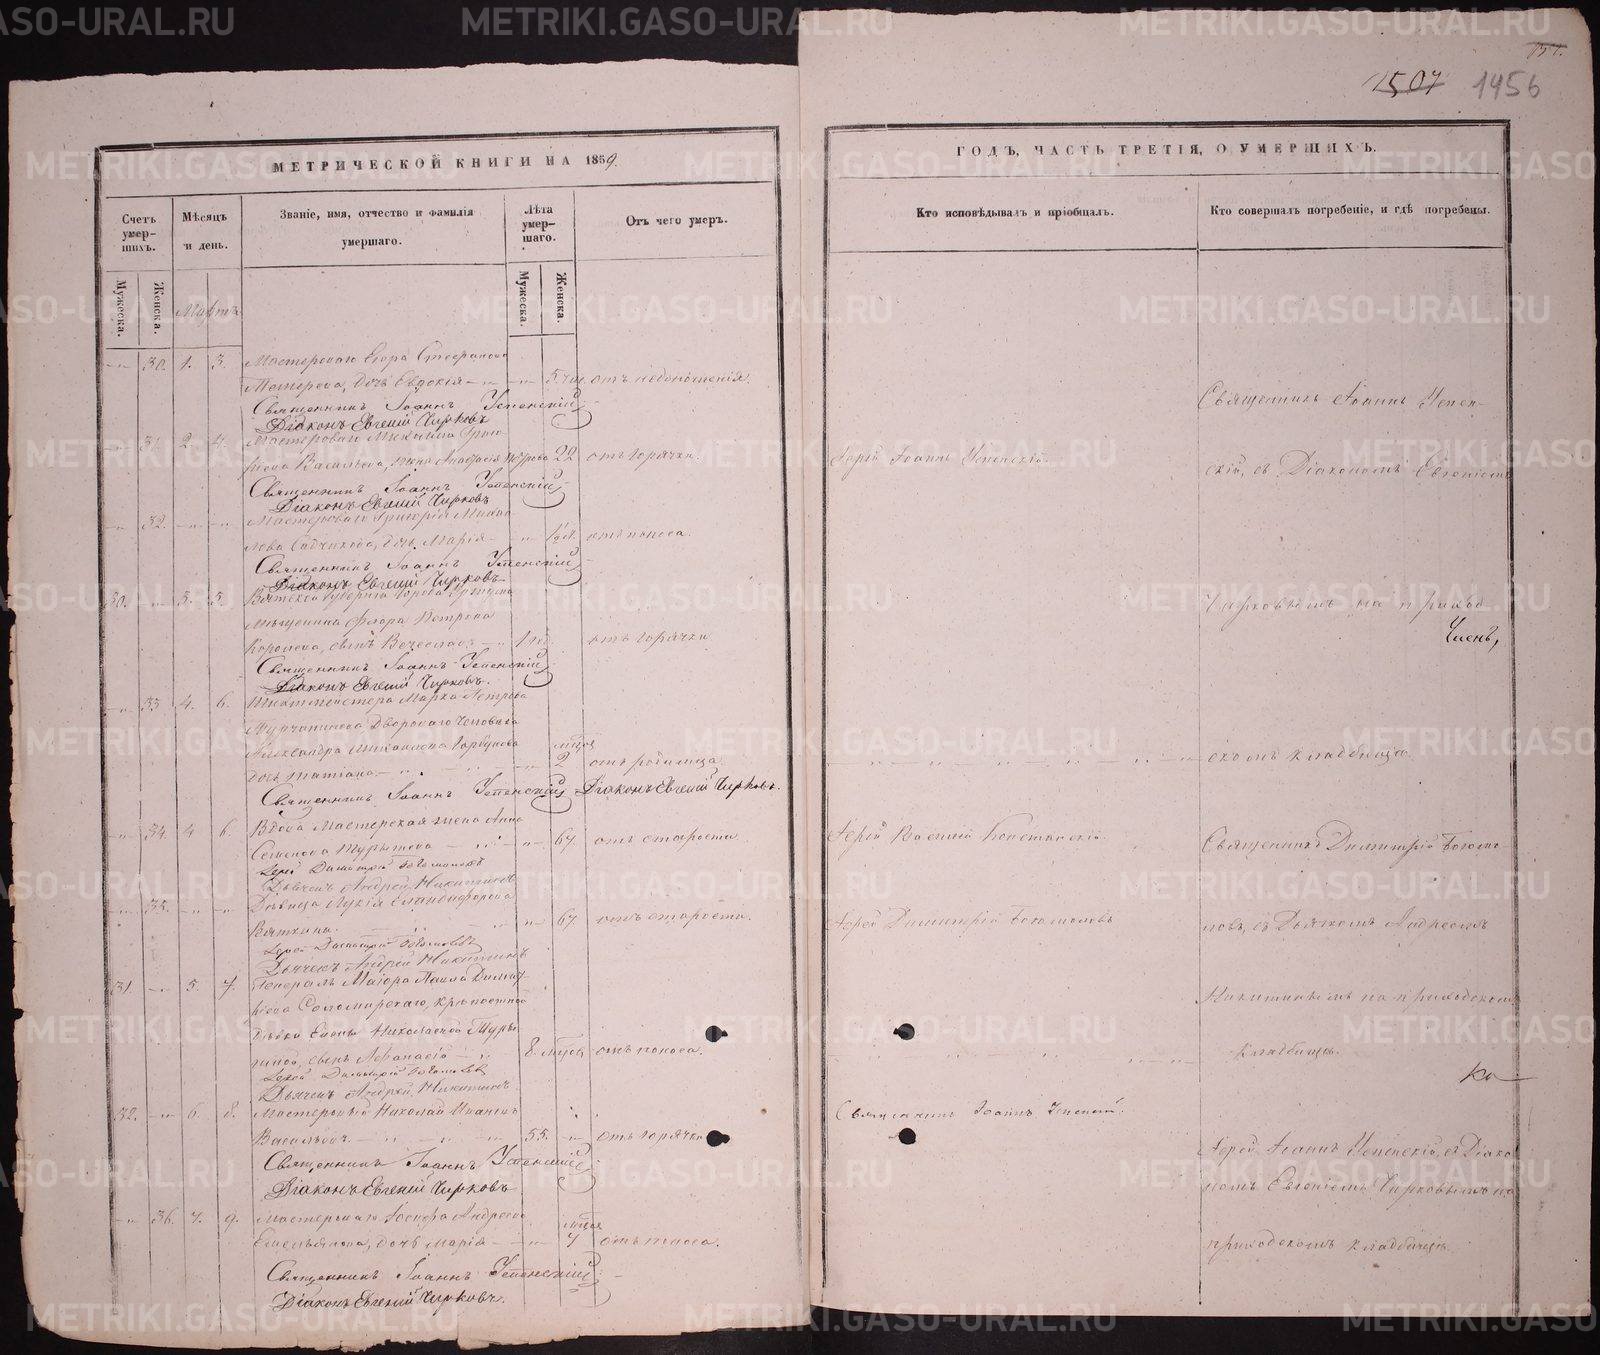 МЕТРИЧЕСКОЙ КНИГИ НА 1859.
Счетъ умер-шихъ.
Мѣсяцъ и день.
Званіе, имя, отчество и фамилія умершаго.
Лѣта умер-шаго.
Отъ чего умеръ.
Мужеска.
Женска.
Мартъ
Мужеска.
Женска.
30. 1. 3. Мастероваго Егора Стефанова
дочь Евдокія 5 отъ недоношенія.
Священникъ Іоаннъ Успенскій
Діаконъ Евгеній Чирковъ
31. 2. 4. Мастероваго Михаила Григо-
рьева Васильева, жена Анастасія Петрова 22 отъ горячки.
Священникъ Іоаннъ Успенскій
Діаконъ Евгеній Чирковъ
32. Мастероваго Григорія Михай-
лова дочь Марія 1½ отъ поноса.
Священникъ Іоаннъ Успенскій
Діаконъ Евгеній Чирковъ
30. 3. 5. Вятской губерніи города Уржума
мѣщанина Флора Петрова
Королева, сынъ Вечеславъ 1 год. отъ горячки
Священникъ Іоаннъ Успенскій
Діаконъ Евгеній Чирковъ.
33 4. 6. Марка Петрова
двороваго человѣка
Александра Михайлова Горбунова мѣсяц.
дочь Татіана 2 отъ родимца.
Священникъ Іоаннъ Успенскій Діаконъ Евгеній Чирковъ.
34. 4 6. Вдова мастерская жена Анна
Семенова 67 отъ старости
Іерей Димитрій Богомоловъ
Дьячекъ Андрей Никитинъ
35. Дѣвица Лукія
Вяткина. 67. отъ старости.
Іерей Димитрій Богомоловъ
Дьячекъ Андрей Никитинъ
31. 5. 7. Генералъ Маіора Павла Дмит-
ріева Соломирскаго, крѣпостной
дѣвки Елены Николаевой
сынъ Афанасій 8 мѣсяц отъ поноса.
Іерей Димитрій Богомоловъ
Дьячекъ Андрей Никитинъ.
32. 6. 8. Мастеровой Николай Ивановъ
Васильевъ 55. отъ горячки
Священникъ Іоаннъ Успенскій
Діаконъ Евгеній Чирковъ
36. 7. 9. Мастероваго Іосифа Андреева
Емельянова, дочь Марія мѣсяц 7 отъ поноса.
Священникъ Іоаннъ Успенскій
Діаконъ Евгеній Чирковъ.
151.
1507 1456
ГОДЪ, ЧАСТЬ ТРЕТІЯ, О УМЕРШИХЪ.
Кто исповѣдывалъ и пріобщалъ.
Кто совершалъ погребеніе, и гдѣ погребены.
Священникъ Іоаннъ Успен-
Іерей Іоаннъ Успенскій.
скій, съ Діакономъ Евгеніемъ
Чирковымъ на приход
скомъ кладбищѣ.
Іерей Василій
Священникъ Димитрій Богомо-
Іерей Димитрій Богомоловъ
ловъ, съ Дьячкомъ Андреемъ
Никитинымъ на приходскомъ
кладбищѣ.
Священникъ Іоаннъ Успенскій.
Іерей Іоаннъ Успенскій, съ Діако-
номъ Евгеніемъ Чирковымъ на
приходскомъ кладбищѣ.
METRIKI.GASO-URAL.RU